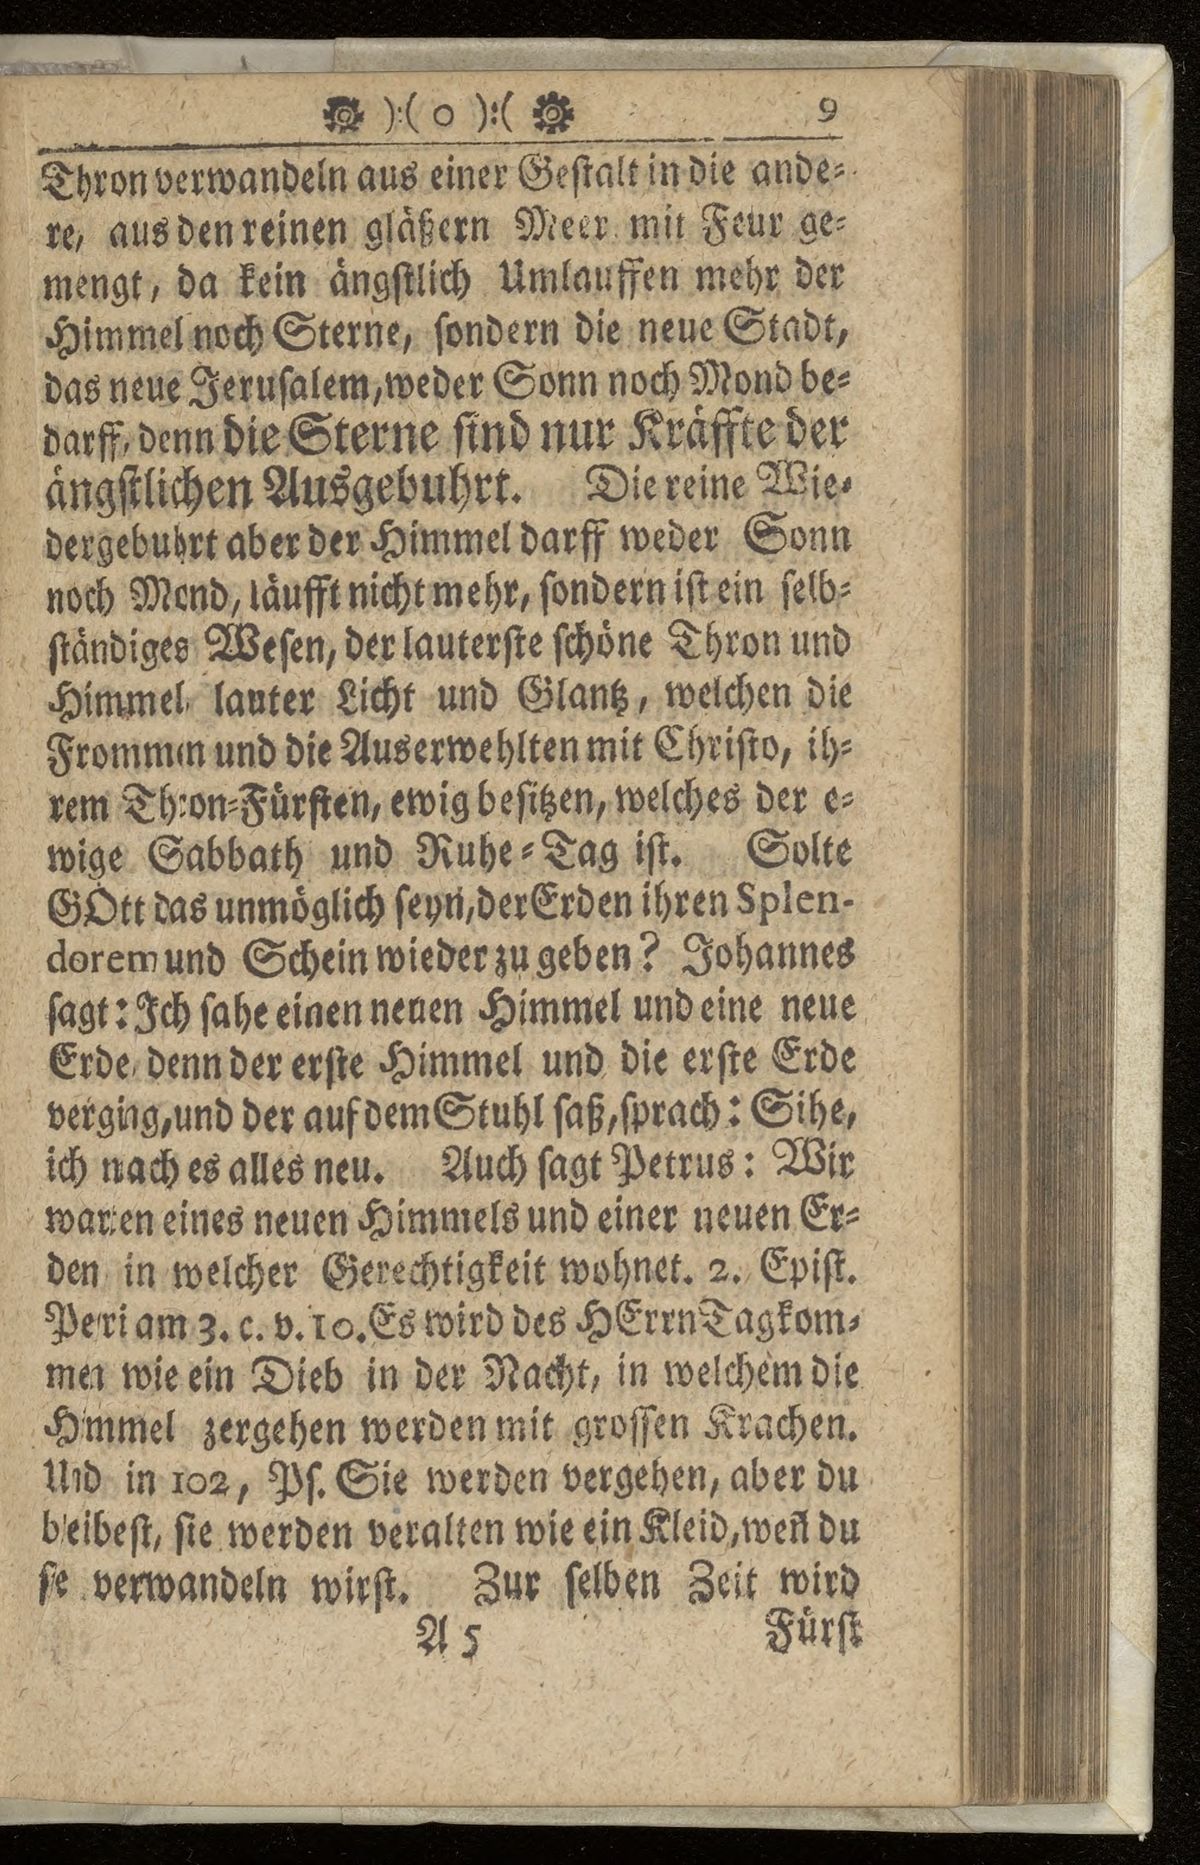 ):( o ):( 9
Thron verwandeln aus einer Gestalt in die ande-
re, aus den reinen gläßern Meer mit Feur ge-
mengt, da kein ängstlich Umlauffen mehr der
Himmel noch Sterne, sondern die neue Stadt,
das neue Jerusalem, weder Sonn noch Mond be-
darff, denn die Sterne sind nur Kräffte der
ängstlichen Ausgebuhrt. Die reine Wie-
dergebuhrt aber der Himmel darff weder Sonn
noch Mond, läufft nicht mehr, sondern ist ein selb-
ständiges Wesen, der lauterste schöne Thron und
Himmel, lauter Licht und Glantz, welchen die
Frommen und die Auserwehlten mit Christo, ih-
rem Thron-Fürsten, ewig besitzen, welches der e-
wige Sabbath und Ruhe-Tag ist. Solte
GOtt das unmöglich seyn, der Erden ihren Splen-
dorem und Schein wieder zu geben? Johannes
sagt: Ich sahe einen neuen Himmel und eine neue
Erde, denn der erste Himmel und die erste Erde
verging, und der auf dem Stuhl saß, sprach: Sihe,
ich mach es alles neu. Auch sagt Petrus: Wir
warten eines neuen Himmels und einer neuen Er-
den in welcher Gerechtigkeit wohnet. 2. Epist.
Petri am 3. c. v. 10. Es wird des HErrn Tag kom-
men wie ein Dieb in der Nacht, in welchem die
Himmel zergehen werden mit grossen Krachen.
Und in 102, Ps. Sie werden vergehen, aber du
bleibest, sie werden veralten wie ein Kleid, weñ du
sie verwandeln wirst. Zur selben Zeit wird
A 5 Fürst